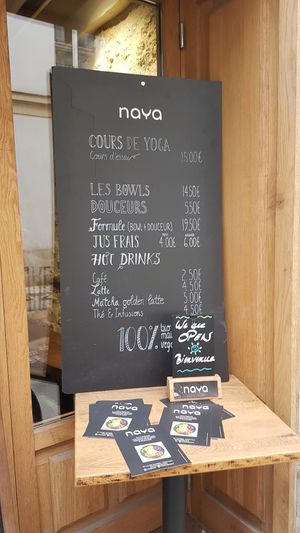 naya
COURS DE YOGA
Cours d'essai 15.00€
LES BOWLS 14.50€
DOUCEURS 5.50€
Formule (BOWL+DOUCEUR) 19.50€
JUS FRAIS 4.00€ 6.00€
HOT DRINKS
Café 2.50€
Latte 4.50€
Matcha golden latte 5.00€
Thé & Infusions 4.50€
100% bio
We are
OPEN
Bienvenue
naya
naya
naya
naya